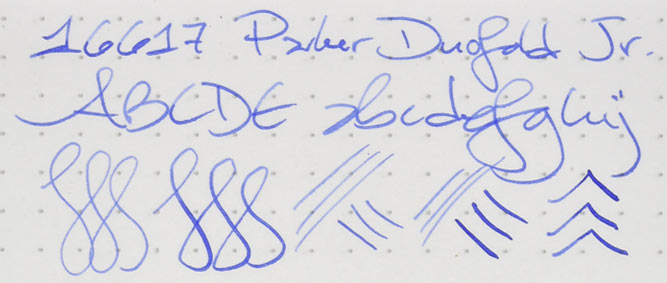 16617 Parker Duofold Jr.
ABCDE abcdefghij